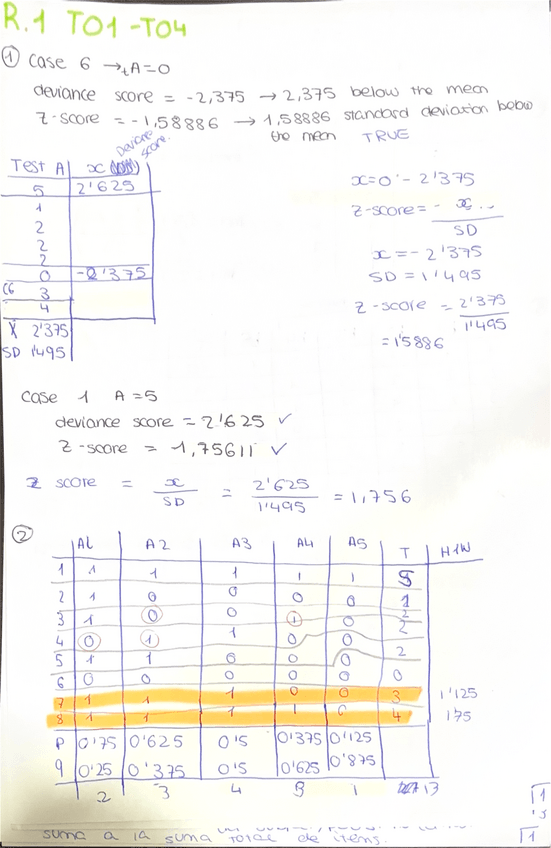 R.1 TO1-TO4
① Case 6 → tA=0
deviance score = -2,375 → 2,375 below the mean
Z-score = -1,58886 → 1,58886 standard deviation below
the mean TRUE
Test A | x deviance score
5 | 2'625
1
2
2
2
0 | -2'375
C6 3
4
X̄ 2'375
SD 1'495
x=0 - 2'375
Z-score = - x
SD
x = -2'375
SD = 1'495
Z-score = 2'375
1'495
= 1'5886
Case 1 A=5
deviance score = 2'625 ✓
Z-score = 1,75611 ✓
Z score = x / SD = 2'625 / 1'495 = 1,756
②
A1 A2 A3 A4 A5 T H1W
1 1 1 1 1 1 5
2 1 0 0 0 0 1
3 1 0 0 1 0 2
4 0 1 1 0 0 2
5 1 1 0 0 0 2
6 0 0 0 0 0 0
7 1 1 1 0 0 3 1'125
8 1 1 1 1 0 4 1'75
P 0'75 0'625 0'5 0'375 0'125
q 0'25 0'375 0'5 0'625 0'875
2 3 4 1 13
suma a la suma total de items.